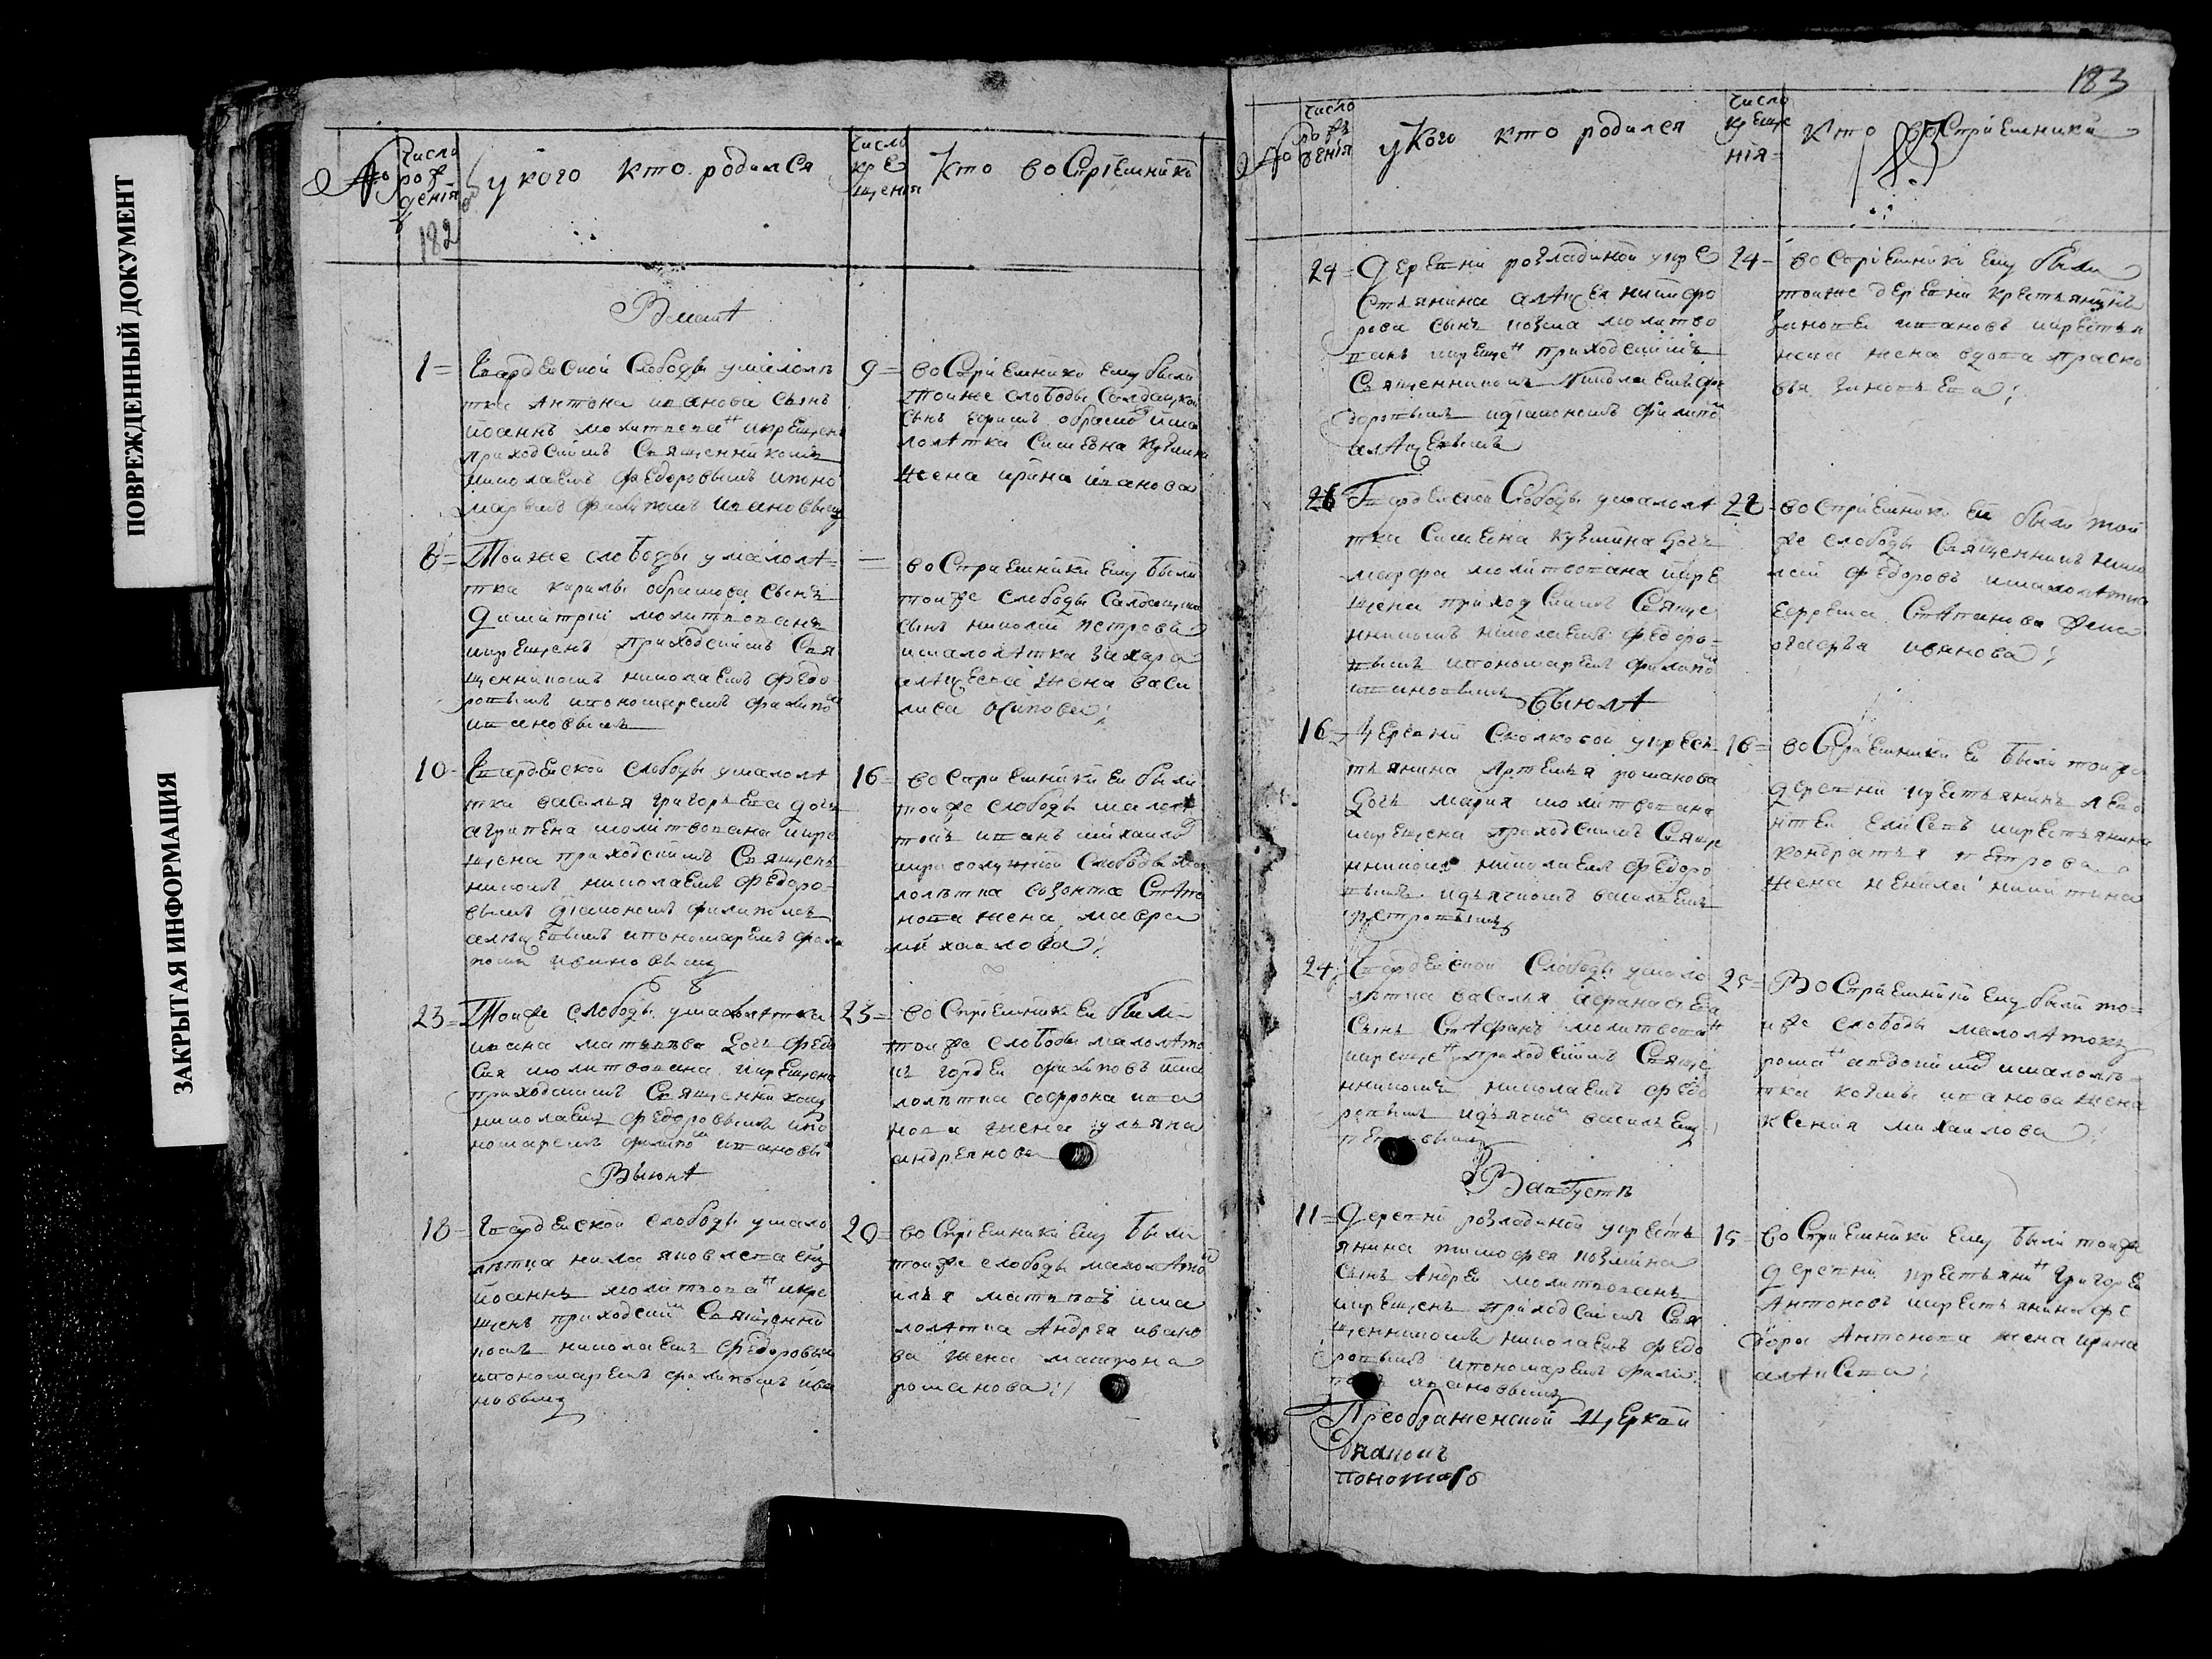 ПОВРЕЖДЕННЫЙ ДОКУМЕНТ
ЗАКРЫТАЯ ИНФОРМАЦИЯ
число
рож
денія
182
у кого кто родился
число
кре
щения
кто воспріемники
В маіѣ
1 = Гвардейской Слободы умалолѣ
тка Антона иванова сынъ
иоаннъ молитвован и крещенъ
приходскимъ Священникомъ
николаемъ федоровымъ и поно
маремъ филипомъ ивановымъ
9 = воспріемники ему были
тоиже слободы салдацкой
сынъ ефимъ и ма
лолѣтка Симеона кузмина
жена ирина иванова
8 = Тоиже слободы умалолѣ
тка кирилы абрамова сынъ
димитрий молитвованъ
и крещенъ приходскимъ Свя
щенникомъ николаемъ федо
ровымъ и пономаремъ филипом
ивановымъ
воспріемники ему были
тоиже слободы салдацкой
сынъ николай петровъ
и малолѣтка захара
алѣксева жена васи
лиса осипова
10 - Гвардейской слободы умалолѣ
тка василья григорьева дочь
агрипена молитвована и кре
щена приходскимъ Священ
никомъ николаемъ федоро
вымъ діакономъ филипомъ
алѣксевымъ и пономаремъ фили
помъ ивановымъ
16 = воспріемники ей были
тоиже слободы малолѣ
токъ иванъ михаиловъ
и слободы мало
лѣтка созонта Стѣпа
нова жена мавра
михаилова
23 = Тоиже слободы умалолѣтка
ивана матвѣева дочь федо
сия молитвована и крещена
приходскимъ Священникомъ
николаемъ федоровымъ и по
номаремъ филипом ивановы
25 = воспріемники ей были
тоиже слободы малолѣто
къ гордей филиповъ и ма
лолѣтка софрона ива
нова жена ульяна
андреянова
В июнѣ
18 - Гвардейской слободы умало
лѣтка нила яковлева сынъ
иоаннъ молитвован и кре
щенъ приходским Священни
комъ николаемъ федоровым
и пономаремъ филипомъ ива
новымъ
20 = воспріемники ему были
тоиже слободы малолѣто
илья матвѣевъ и ма
лолѣтка Андрея ивано
ва жена матрона
романова
183
число
рож
денія
у кого кто родился
число
креще
нія =
кто воспріемники
183
24 = Деревни розладиной у кре
стьянина алѣксея никифо
рова сынъ козма молитво
ванъ и крещен приходскимъ
Священникомъ Николаемъ фе
доровымъ и діакономъ филипо
алѣксевымъ
24 - воспріемники ему были
тоиже деревни крестьянинъ
зиновей ивановъ и крестья
нска жена вдова праско
вья зиновьева
26 Гвардейской Слободы умалолѣ
тки Симеона кузмина дочь
марфа молитвована и кре
щена приходскимъ Священ
никомъ николаемъ федоро
вымъ и пономаремъ филипом
ивановымъ
воспріемники ей были той
же слободы Священникъ нико
лай федоровъ и малолѣтка
ефрема Стѣпанова жена
иванова
В июлѣ
16 - Деревни Сколковой у крес
тьянина Артемья романова
дочь мария молитвована
и крещена приходскимъ Священ
никомъ николаемъ федоро
вымъ и дьячкомъ васильемъ
петровымъ
16 = воспріемники ей были тоиже
деревни крестьянинъ лево
нтей елисевъ и крестьянина
кондратья петрова
жена никитина
24 = Гвардейской Слободы умало
лѣтка василья афанасьева
сынъ Стѣфанъ молитвован
и крещен приходскимъ Священ
никомъ николаемъ федо
ровымъ и дьячком васильемъ
петровымъ
25 = Воспріемники ему были то
иже слободы малолѣтокъ
роман и малолѣ
тки козмы иванова жена
ксения михаилова
В августѣ
11 = Деревни розладиной у кресть
янина тимофея козмина
сынъ Андрей молитвованъ
и крещенъ приходскимъ Свя
щенникомъ николаемъ федо
ровымъ и пономаремъ фили
помъ ивановымъ
15 = воспріемники ему были тоиже
деревни крестьянин григорей
Антоновъ и крестьянина фе
дора Антонова жена ирина
алѣксева
Преображенской Церкви
диаконъ
пономарь